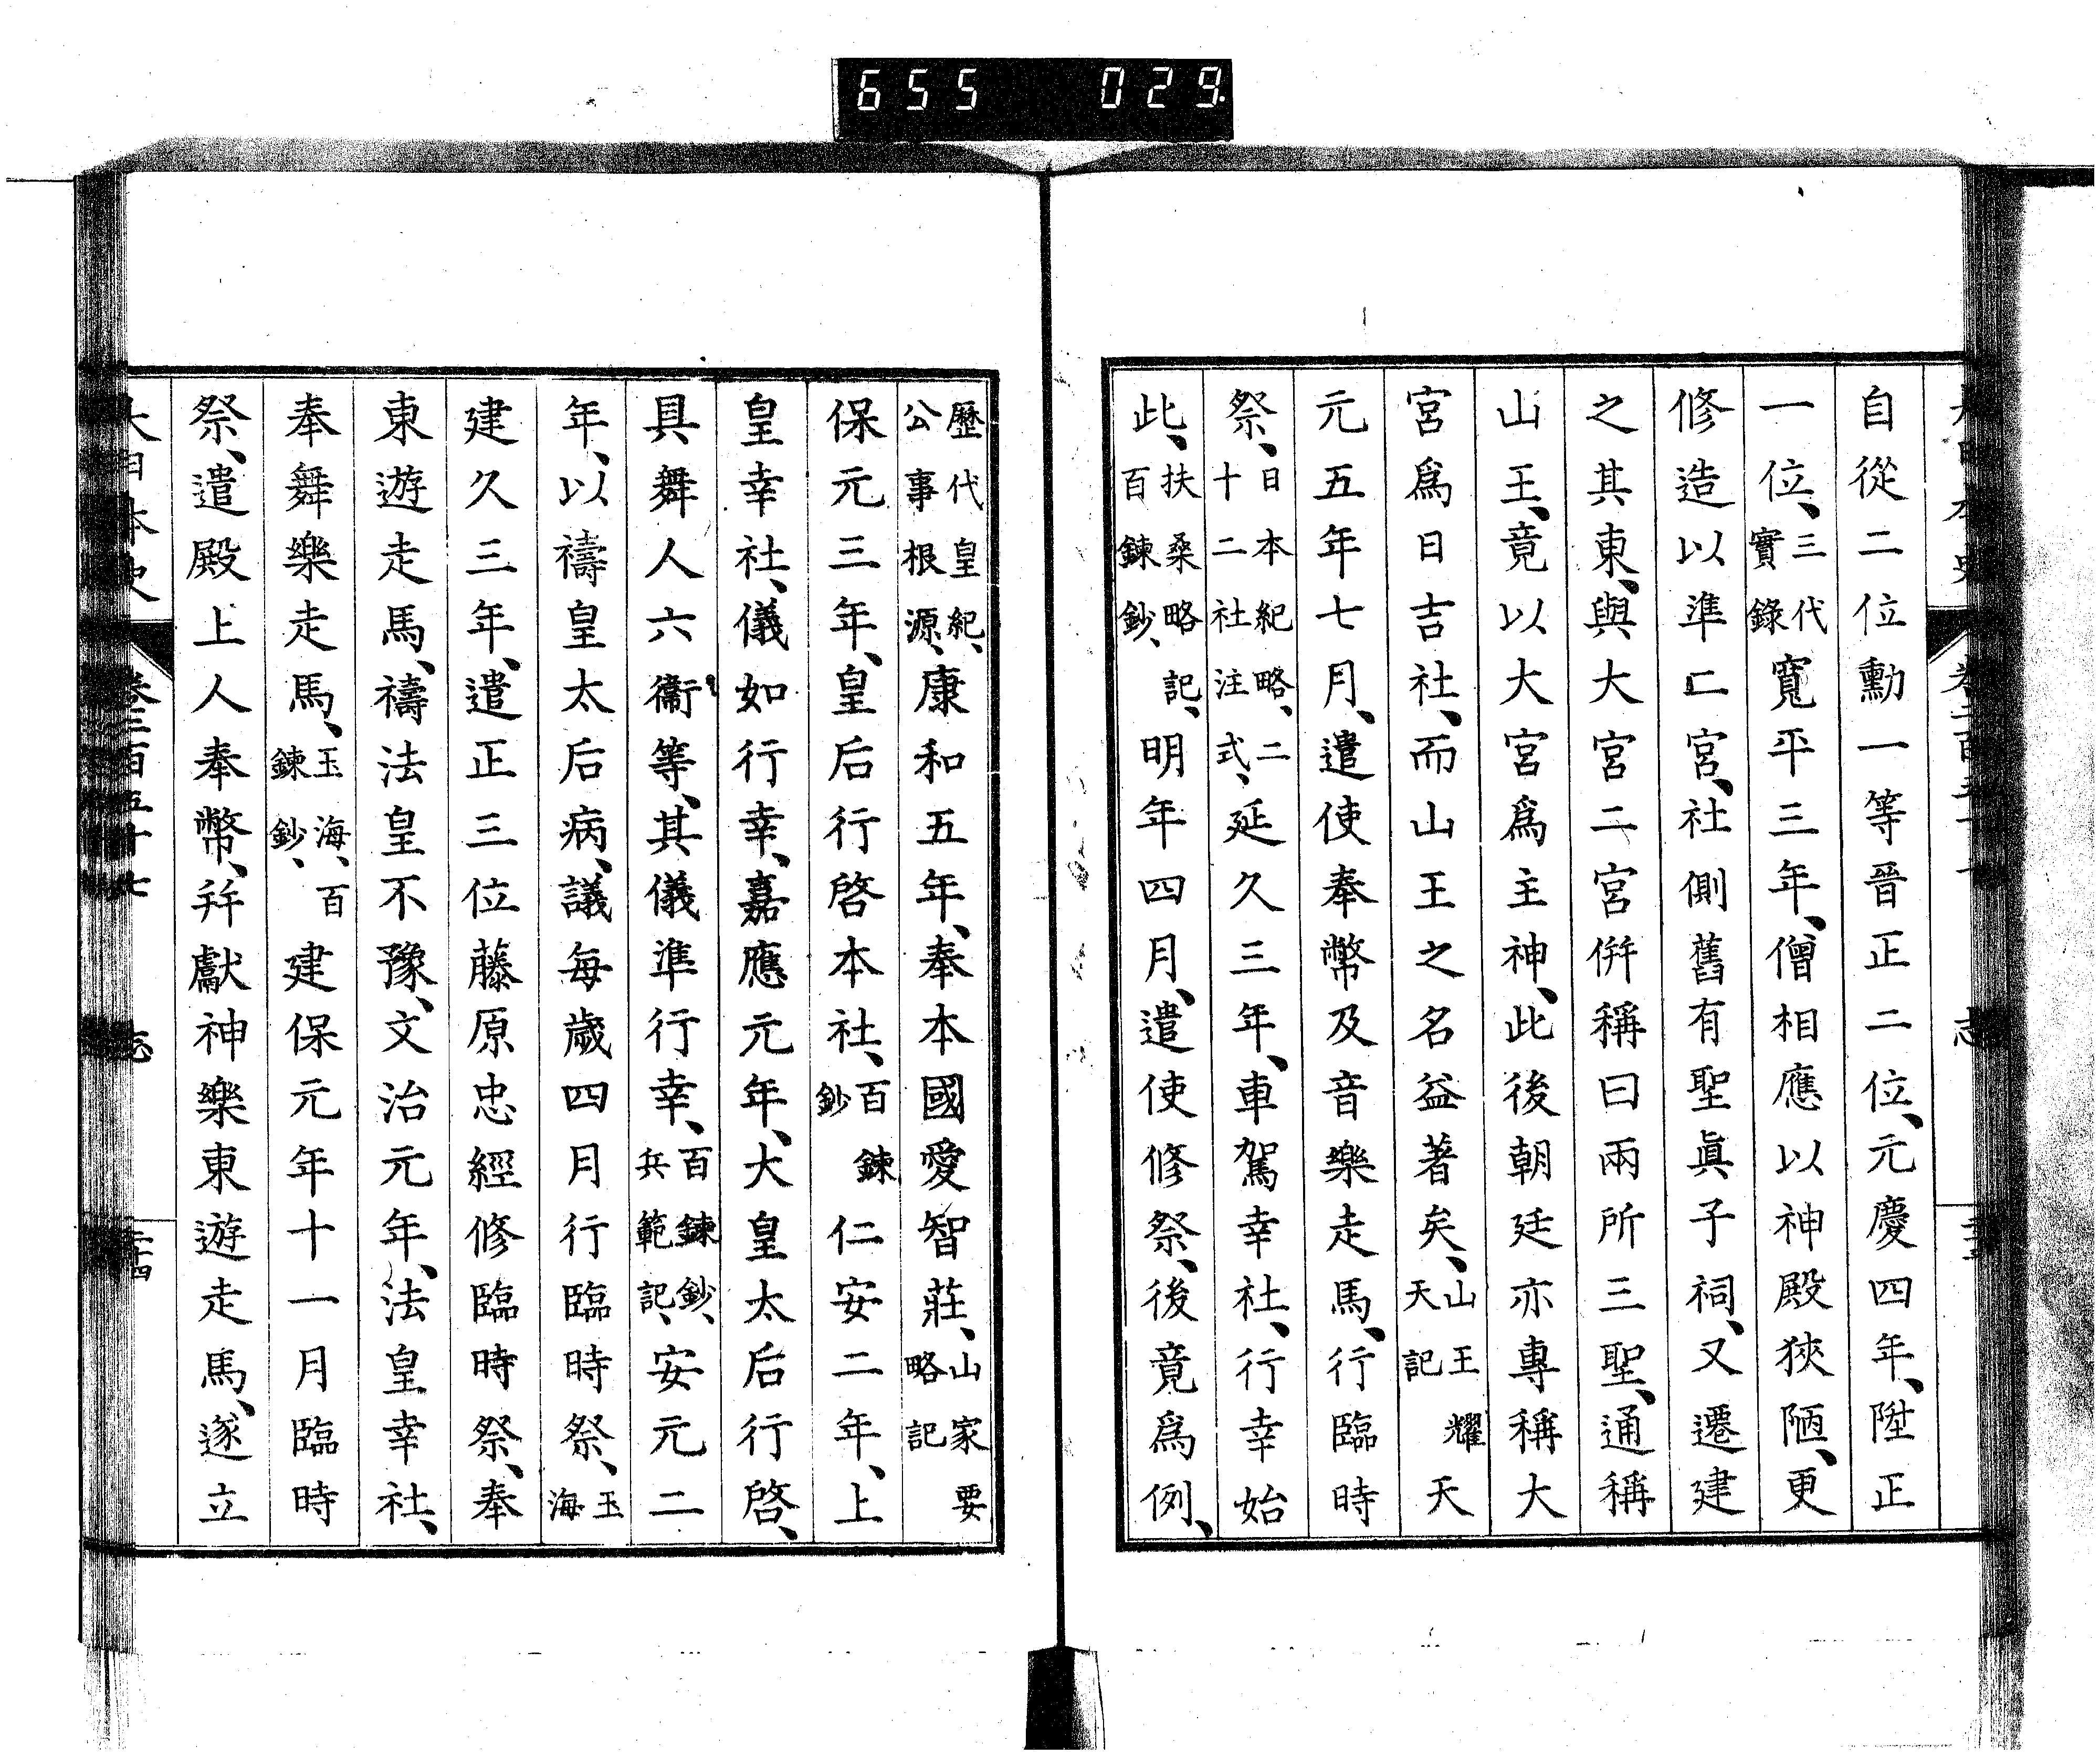 655 029
自從二位勳一等晉正二位、元慶四年、陞正
一位、三代實錄寬平三年、僧相應以神殿狹陋、更
修造以準二宮、社側舊有聖眞子祠、又遷建
之其東、與大宮二宮併稱曰兩所三聖、通稱
山王、竟以大宮爲主神、此後朝廷亦專稱大
宮爲日吉社、而山王之名益著矣、山王耀天記天
元五年七月、遣使奉幣及音樂走馬、行臨時
祭、日本紀略、二十二社注式、延久三年、車駕幸社、行幸始
此、扶桑略記、百鍊鈔、明年四月、遣使修祭、後竟爲例、
歷代皇紀、公事根源、康和五年、奉本國愛智莊、山家要略記
保元三年、皇后行啓本社、百鍊鈔仁安二年、上
皇幸社、儀如行幸、嘉應元年、大皇太后行啓、
具舞人六衞等、其儀準行幸、百鍊鈔、兵範記、安元二
年、以禱皇太后病、議每歲四月行臨時祭、玉海
建久三年、遣正三位藤原忠經修臨時祭、奉
東遊走馬、禱法皇不豫、文治元年、法皇幸社、
奉舞樂走馬、玉海、百鍊鈔、建保元年十一月臨時
祭、遣殿上人奉幣、幷獻神樂東遊走馬、遂立
大日本史 卷二百五十七 志 二十四